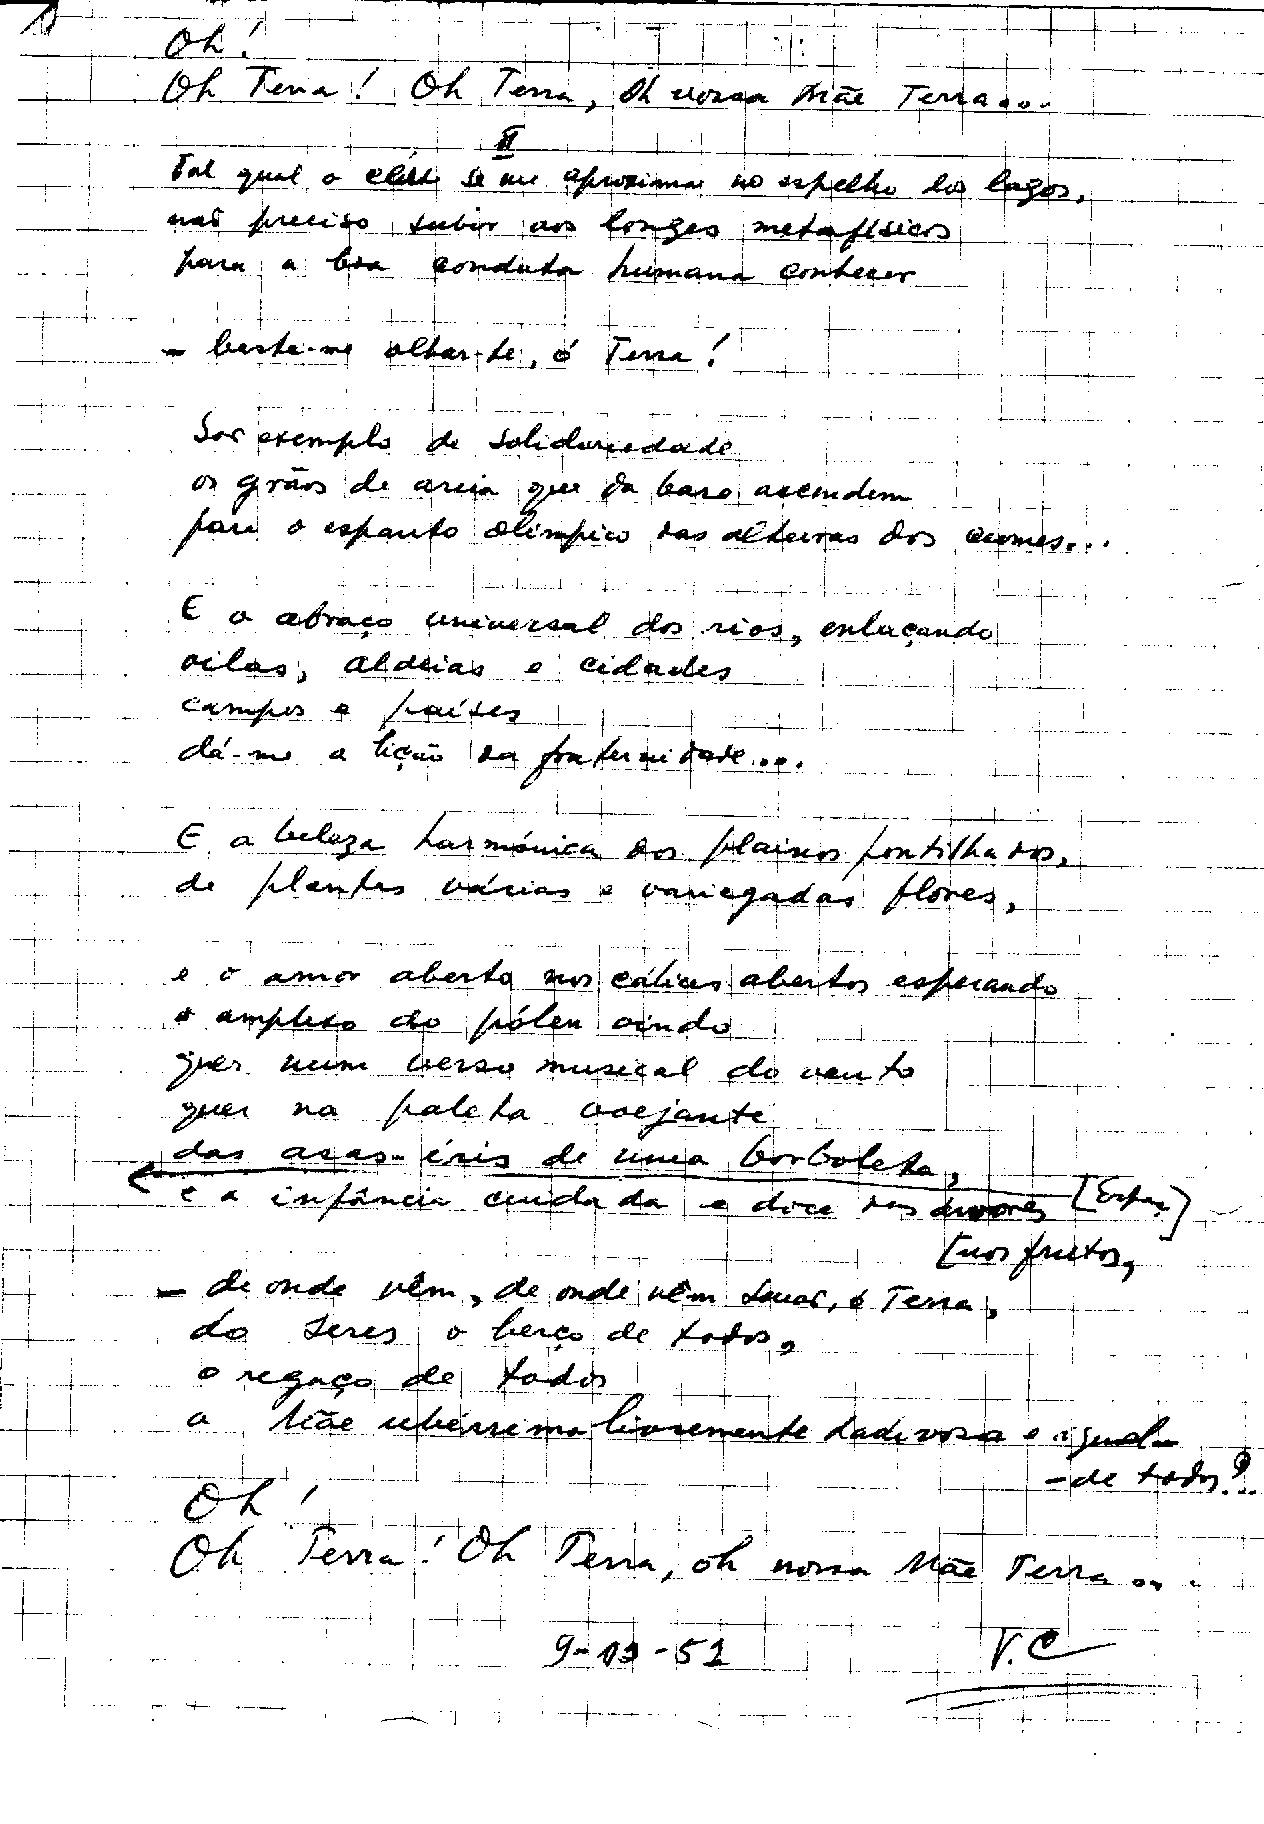 Oh!
Oh Terra! Oh Terra, oh nossa Mãe Terra....
II
Tal qual o se me aproxima no espelho dos lagos,
não preciso subir aos longes metafísicos
para a boa conduta humana conhecer
- basta-me olhar-te, ó Terra!
São exemplo de solidariedade
os grãos de areia que da base ascendem
para o espanto olímpico das alturas dos cumes...
E o abraço universal dos rios, enlaçando
vilas, aldeias e cidades
campos e países
dá-me a lição da fraternidade....
E a beleza harmónica dos plainos pontilhados,
de plantas várias e variegadas flores,
e o amor aberto nos cálices abertos esperando
o amplexo do pólen vindo
quer num verso musical do vento
quer na paleta voejante
das asas-íris de uma borboleta,
e a infância cuidada e doce das árvores [Espaç]
[nos frutos,
- de onde vêm, de onde vêm senão, ó Terra,
do seres o berço de todos,
o regaço de todos
a Mãe ubérrima livremente dadivosa e igual-
- de todos?...
Oh!
Oh Terra! Oh Terra, oh nossa Mãe Terra....
9-12-51 V.C